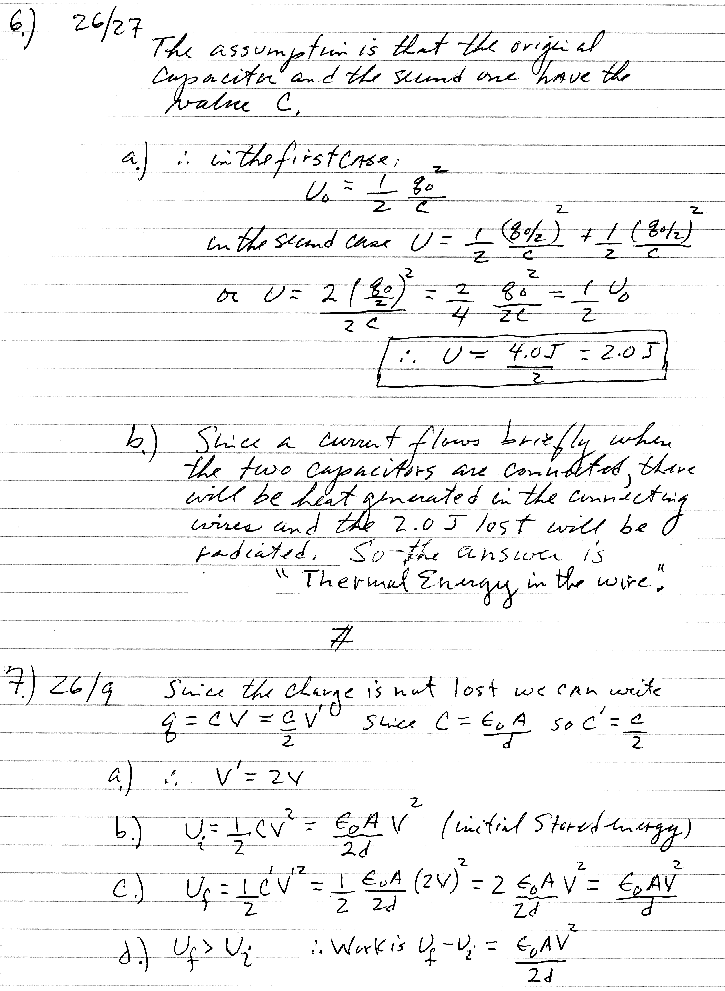 6.) 26/27
The assumption is that the original
capacitor and the second one have the
value C.
a.) ∴ in the first case:
U₀ = 1/2 q₀²/C
in the second case U = 1/2 (q₀/2)²/C + 1/2 (q₀/2)²/C
or U = 2(q₀/2)²/2C = 2/4 q₀²/2C = 1/2 U₀
∴ U = 4.0J/2 = 2.0J
b.) Since a current flows briefly when
the two capacitors are connected, there
will be heat generated in the connecting
wires and the 2.0 J lost will be
radiated. So the answer is
"Thermal Energy in the wire".
#
7.) 26/9 Since the charge is not lost we can write
q = CV = C/2 V' since C = ε₀A/d so C' = C/2
a.) ∴ V' = 2V
b.) Uᵢ = 1/2 CV² = ε₀A/2d V² (initial Stored energy)
c.) U_f = 1/2 C'V'² = 1/2 ε₀A/2d (2V)² = 2 ε₀A/2d V² = ε₀AV²/d
d.) U_f > Uᵢ ∴ Work is U_f - Uᵢ = ε₀AV²/2d